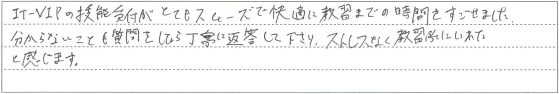 IT-VIPの技能受付がとてもスムーズで快適に教習までの時間をすごせました。
分からないことも質問をしたら丁寧に返答して下さり、ストレスなく教習所にいれた
と感じます。